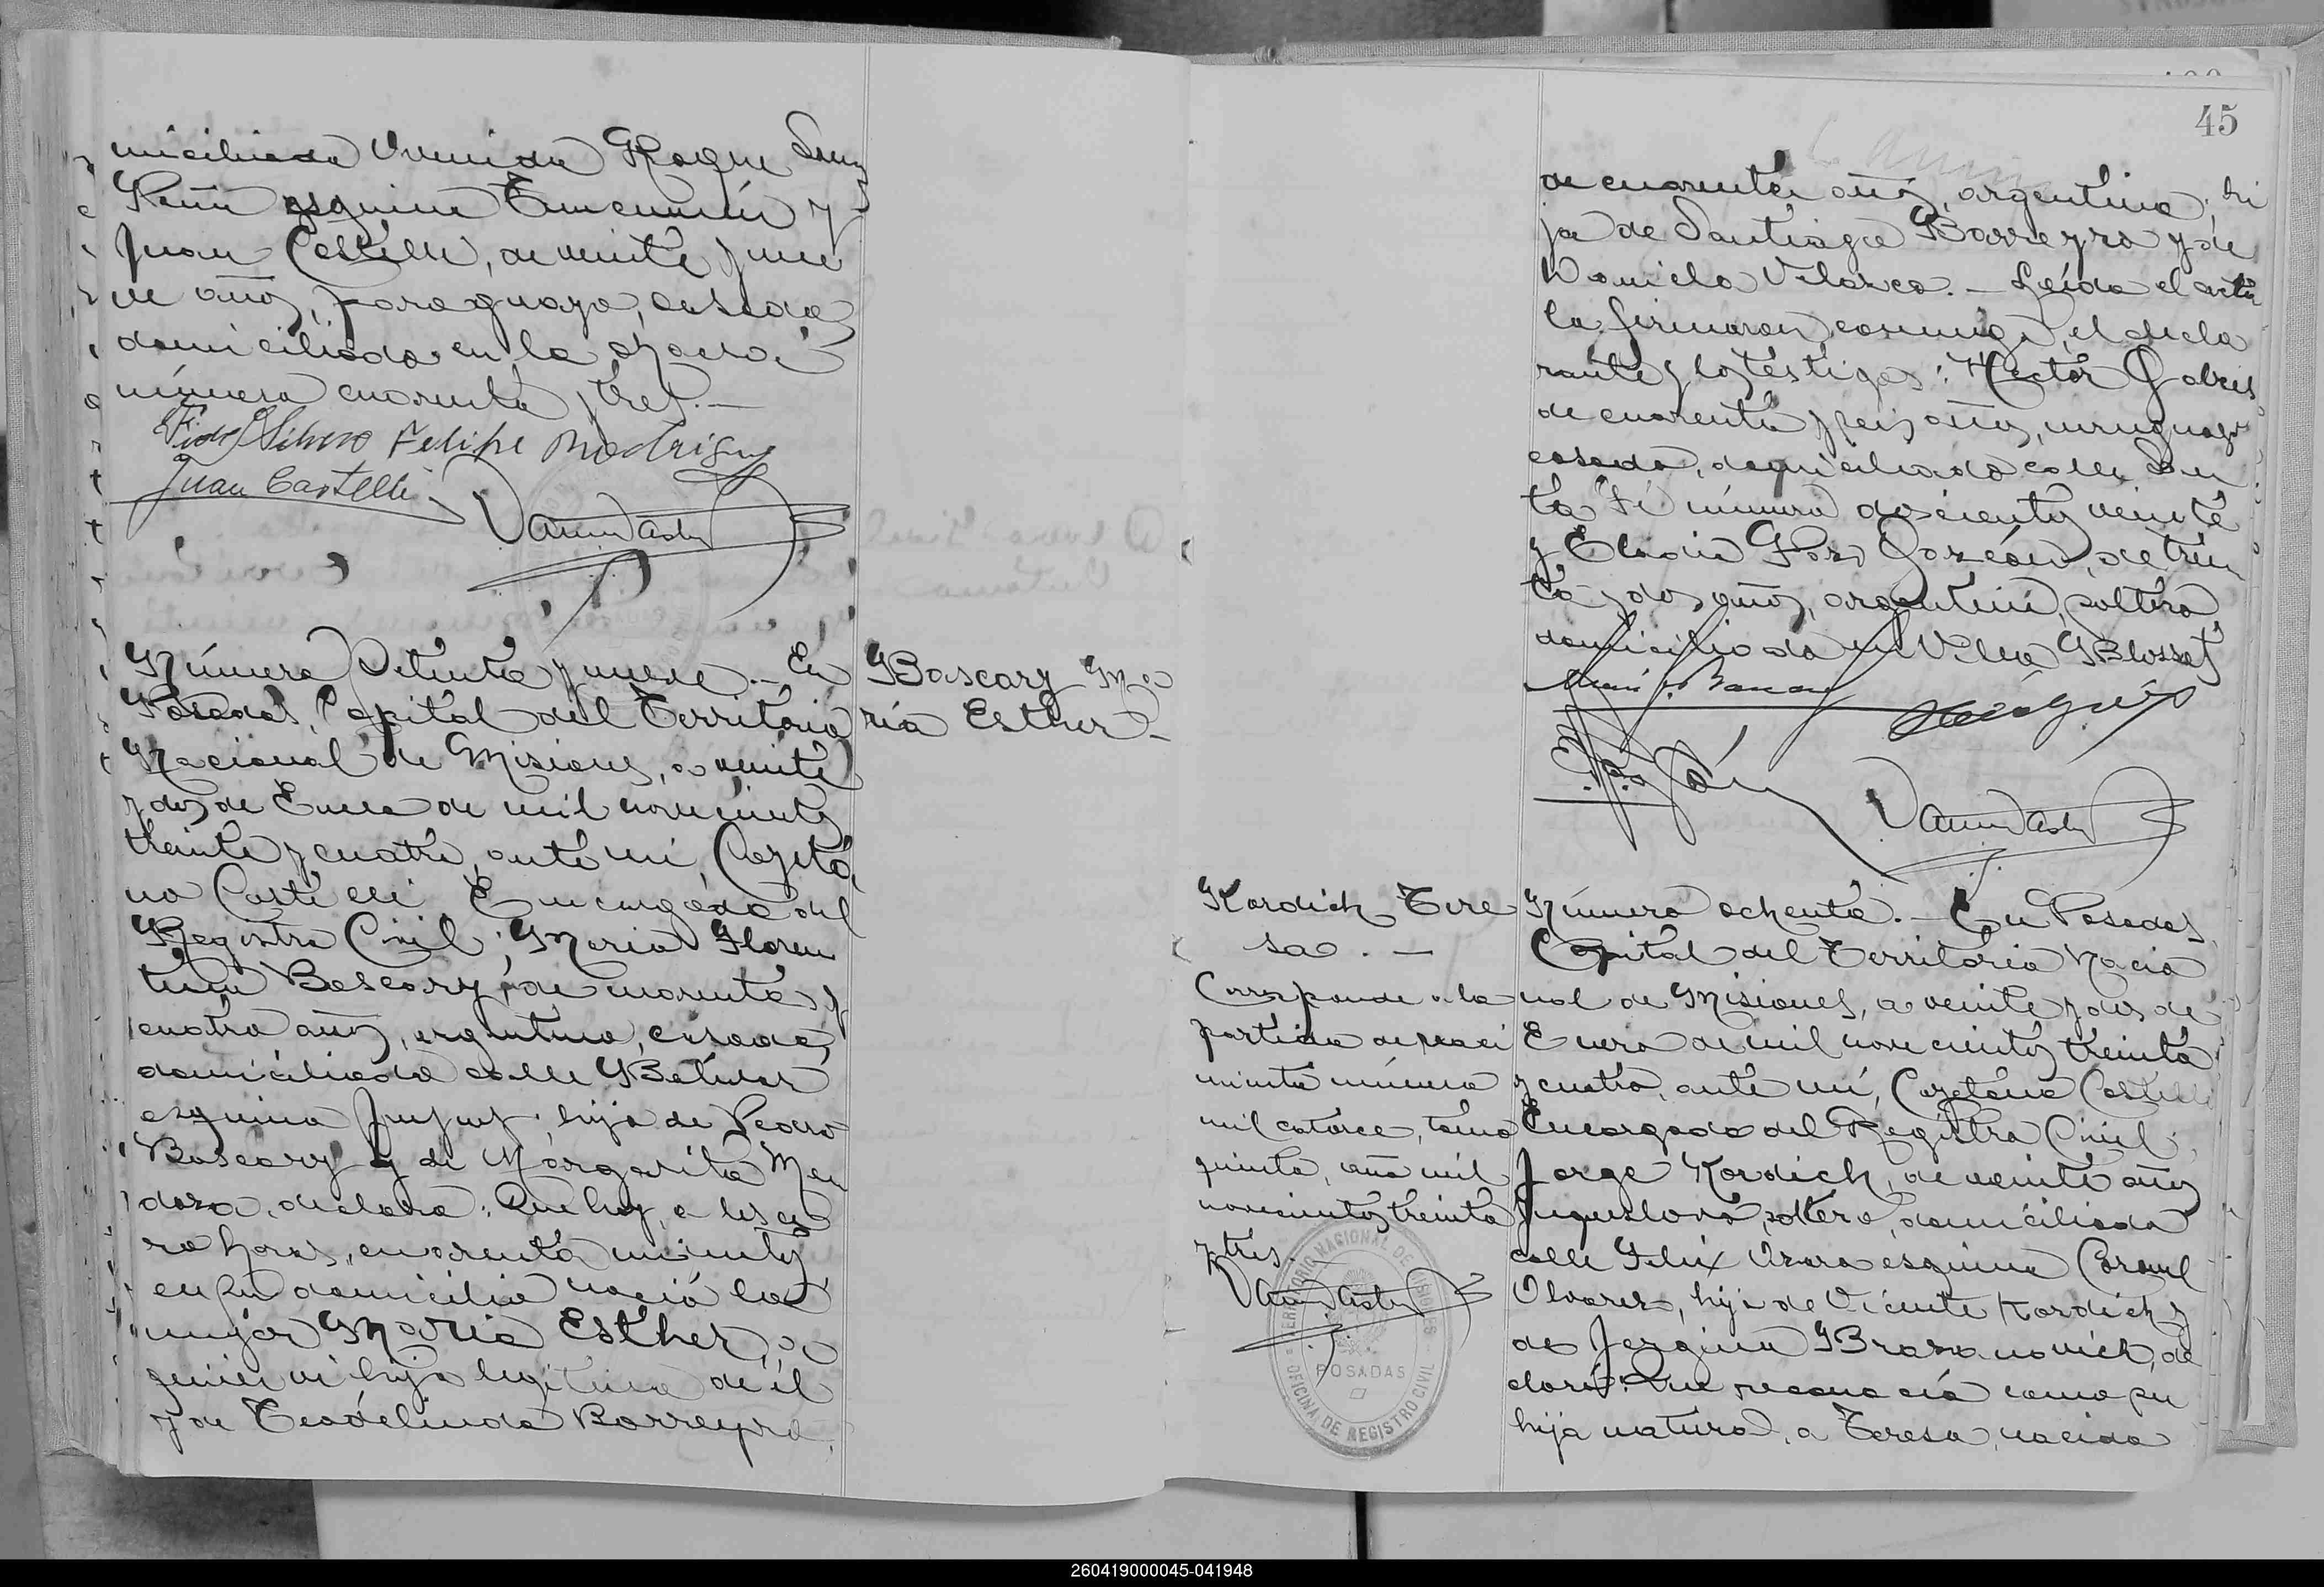 miciliado Avenida Roque Saenz
Peña esquina Tucumán y
Juan Castelli, de veinte y nue
ve años, paraguayo, casado,
domiciliado en la chacra
número cuarenta y tres.—
Fidel Silvero Felipe Rodriguez
Juan Castelli
Número Setenta y nueve.— En
Posadas, Capital del Territorio
Nacional de Misiones, a veinte
y dos de Enero de mil novecientos
treinta y cuatro, ante mi, Cayeta
no Castelli Encargado del
Registro Civil; Maria Floren
tino Bascary, de cuarenta y
cuatro años, argentino, casado,
domiciliado calle Bolivar
esquina Jujuy, hijo de Pedro
Bascary y de Margarita Men
doza, declaró: Que hoy, a las ce
ro horas, cuarenta minutos
en su domicilio nació la
mujer Maria Esther, a
quien vi hija legítima de él
y de Teodelinda Barreyro,
Bascary Ma
ría Esther—
45
de cuarenta años, argentina, hi
ja de Santiago Barreyro y de
Daniela Velasco.— Leída el acta
la firmaron conmigo, el decla
rante y los testigos: Hector
de cuarenta y seis años, uruguayo
casado, domiciliado calle San
ta Fé número doscientos veinte
y Eladio de trein
ta y dos años, argentino, soltero
domiciliado en Villa Blosset
Kordich Tere
sa.—
Corresponde a la
partida de naci
miento número
mil catorce, tomo
quinto, año mil
novecientos treinta
y tres.
TERRITORIO NACIONAL DE MISIONES
POSADAS
OFICINA DE REGISTRO CIVIL
Número ochenta.— En Posadas,
Capital del Territorio Nacio
nal de Misiones, a veinte y dos de
Enero de mil novecientos treinta
y cuatro, ante mí, Cayetano Castelli
Encargado del Registro Civil;
Jorge Kordich, de veinte años
Yugueslavo, soltero, domiciliado
calle Felix Azara esquina Coronel
Alvarez, hijo de Vicente Kordich y
de Jergina Brazanovich, de
claró: Que reconocía como su
hija natural, a Teresa, nacida
260419000045-041948